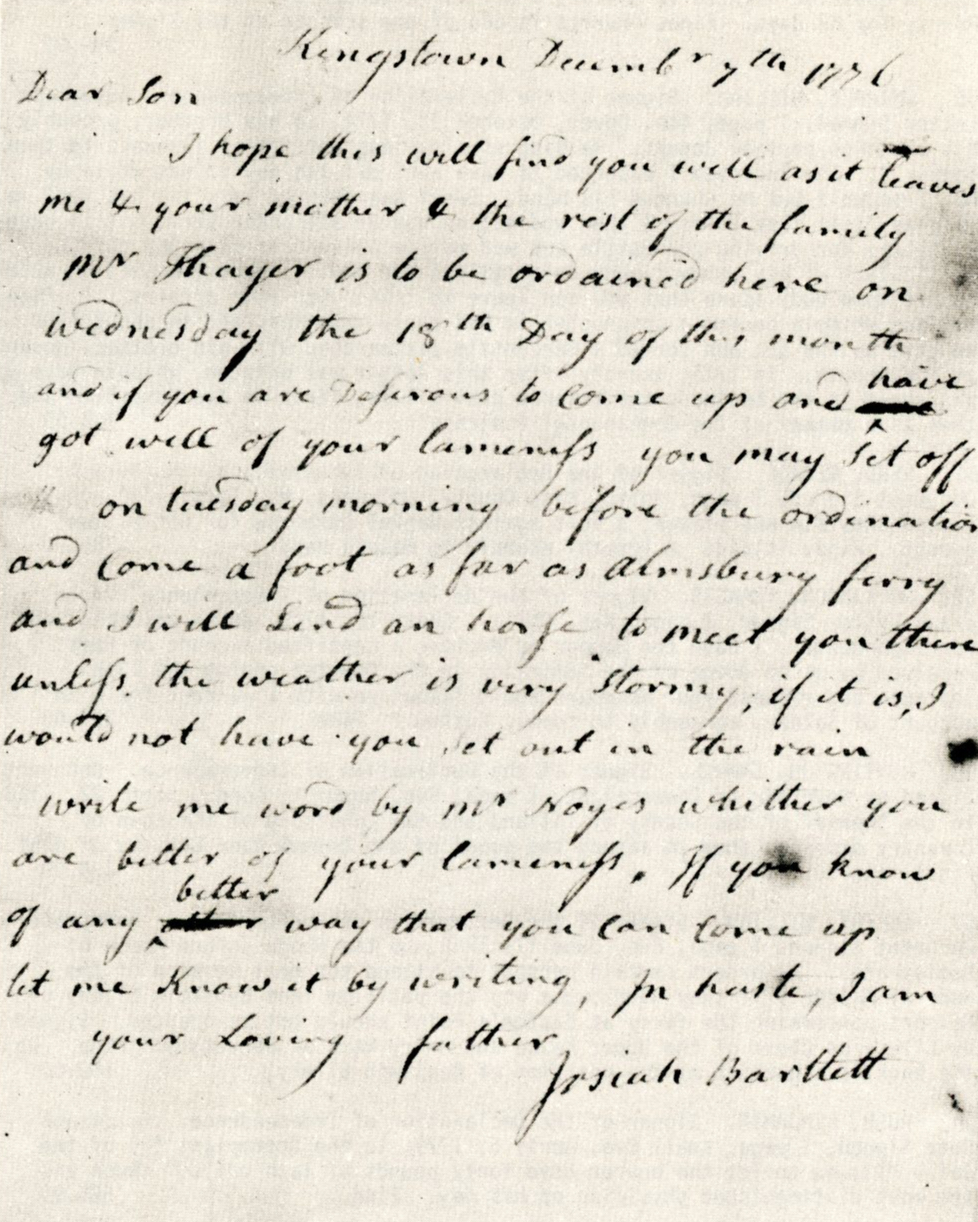 Kingstown Decembr 7th 1776
Dear Son
I hope this will find you well as it leaves
me & your mother & the rest of the family
Mr Thayer is to be ordained here on
wednesday the 18th Day of this month
and if you are Desirous to Come up and have
got well of your lameness you may set off
on tuesday morning before the ordination
and Come a foot as far as Almsbury ferry
and I will Send an horse to meet you there
unless the weather is very Stormy, if it is, I
would not have you set out in the rain
write me word by Mr Noyes whether you
are better of your lameness. If you know
of any better way that you Can Come up
let me Know it by writing, In haste, I am
your Loving father
Josiah Bartlett